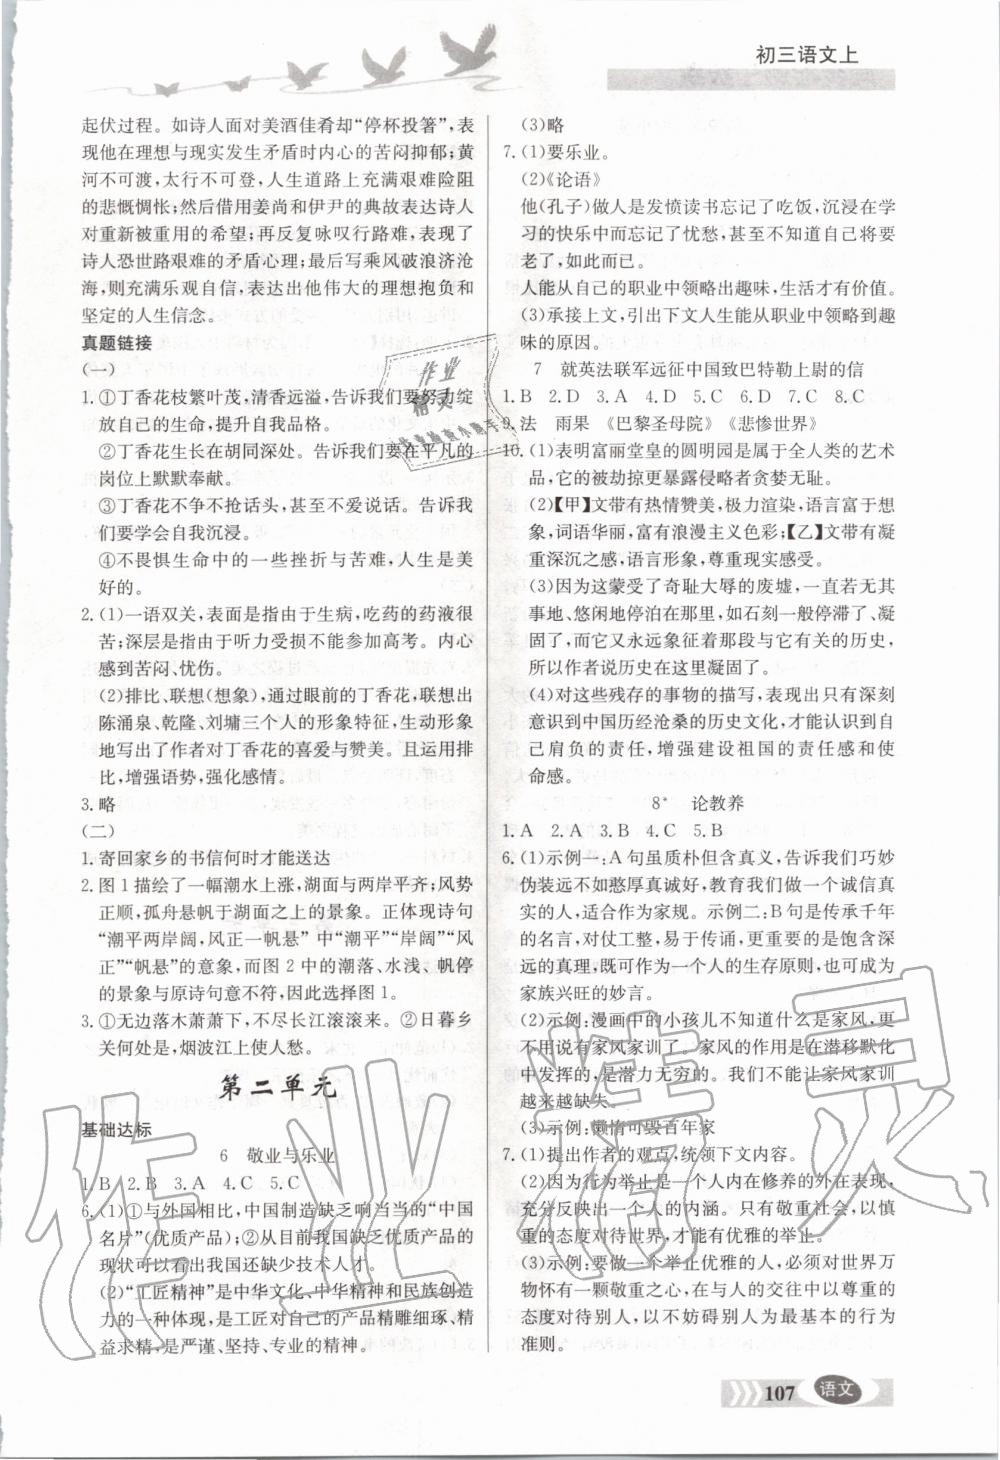 初三语文上
起伏过程。如诗人面对美酒佳肴却“停杯投箸”,表
现他在理想与现实发生矛盾时内心的苦闷抑郁;黄
河不可渡,太行不可登,人生道路上充满艰难险阻
的悲慨惆怅;然后借用姜尚和伊尹的典故表达诗人
对重新被重用的希望;再反复咏叹行路难,表现了
诗人恐世路艰难的矛盾心理;最后写乘风破浪济沧
海,则充满乐观自信,表达出他伟大的理想抱负和
坚定的人生信念。
真题链接
(一)
1.①丁香花枝繁叶茂,清香远溢,告诉我们要努力绽
放自己的生命,提升自我品格。
②丁香花生长在胡同深处。告诉我们要在平凡的
岗位上默默奉献。
③丁香花不争不抢话头,甚至不爱说话。告诉我
们要学会自我沉浸。
④不畏惧生命中的一些挫折与苦难,人生是美
好的。
2.(1)一语双关,表面是指由于生病,吃药的药液很
苦;深层是指由于听力受损不能参加高考。内心
感到苦闷、忧伤。
(2)排比、联想(想象),通过眼前的丁香花,联想出
陈涌泉、乾隆、刘墉三个人的形象特征,生动形象
地写出了作者对丁香花的喜爱与赞美。且运用排
比,增强语势,强化感情。
3.略
(二)
1.寄回家乡的书信何时才能送达
2.图1描绘了一幅潮水上涨,湖面与两岸平齐;风势
正顺,孤舟悬帆于湖面之上的景象。正体现诗句
“潮平两岸阔,风正一帆悬”中“潮平”“岸阔”“风
正”“帆悬”的意象,而图2中的潮落、水浅、帆停
的景象与原诗句意不符,因此选择图1。
3.①无边落木萧萧下,不尽长江滚滚来。②日暮乡
关何处是,烟波江上使人愁。
第二单元
基础达标
6 敬业与乐业
1.B 2.B 3.A 4.C 5.C
6.(1)①与外国相比,中国制造缺乏响当当的“中国
名片”(优质产品);②从目前我国缺乏优质产品的
现状可以看出我国还缺少技术人才。
(2)“工匠精神”是中华文化、中华精神和民族创造
力的一种体现,是工匠对自己的产品精雕细琢,精
益求精,是严谨、坚持、专业的精神。
(3)略
7.(1)要乐业。
(2)《论语》
他(孔子)做人是发愤读书忘记了吃饭,沉浸在学
习的快乐中而忘记了忧愁,甚至不知道自己将要
老了,如此而已。
人能从自己的职业中领略出趣味,生活才有价值。
(3)承接上文,引出下文人生能从职业中领略到趣
味的原因。
7 就英法联军远征中国致巴特勒上尉的信
1.B 2.D 3.C 4.A 5.C 6.D 7.C 8.C
9.法 雨果 《巴黎圣母院》《悲惨世界》
10.(1)表明富丽堂皇的圆明园是属于全人类的艺术
品,它的被劫掠更暴露侵略者贪婪无耻。
(2)【甲】文带有热情赞美,极力渲染,语言富于想
象,词语华丽,富有浪漫主义色彩;【乙】文带有凝
重深沉之感,语言形象,尊重现实感受。
(3)因为这蒙受了奇耻大辱的废墟,一直若无其
事地、悠闲地停泊在那里,如石刻一般停滞了、凝
固了,而它又永远象征着那段与它有关的历史,
所以作者说历史在这里凝固了。
(4)对这些残存的事物的描写,表现出只有深刻
意识到中国历经沧桑的历史文化,才能认识到自
己肩负的责任,增强建设祖国的责任感和使
命感。
8* 论教养
1.A 2.A 3.B 4.C 5.B
6.(1)示例一:A句虽质朴但含真义,告诉我们巧妙
伪装远不如憨厚真诚好,教育我们做一个诚信真
实的人,适合作为家规。示例二:B句是传承千年
的名言,对仗工整,易于传诵,更重要的是饱含深
远的真理,既可作为一个人的生存原则,也可成为
家族兴旺的妙言。
(2)示例:漫画中的小孩儿不知道什么是家风,更
不用说有家风家训了。家风的作用是在潜移默化
中发挥的,是潜力无穷的。我们不能让家风家训
越来越缺失。
(3)示例:懒惰可毁百年家
7.(1)提出作者的观点,统领下文内容。
(2)因为行为举止是一个人内在修养的外在表现,
充分反映出一个人的内涵。只有真诚善良,以尊
重的态度对待世界,才能有优雅的举止。
(3)示例:要做一个举止优雅的人,必须对世界万
物怀有一颗敬重之心,在与人的交往中以尊重的
态度对待别人,以不妨碍别人为最基本的行为
准则。
107 语文
作业精灵